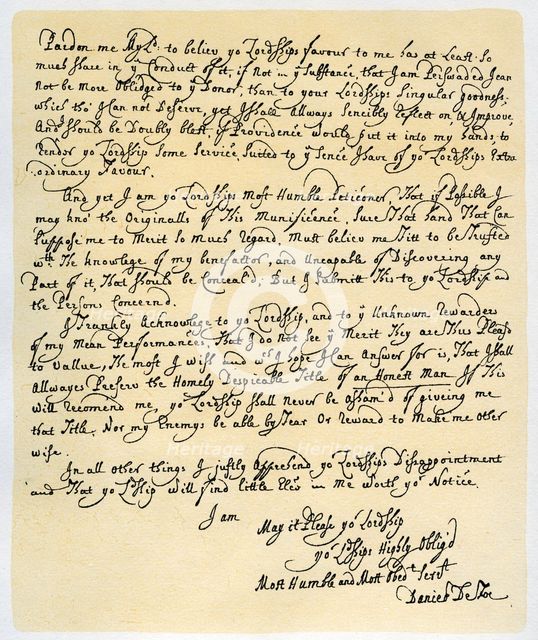 Pardon me My Ld: to believ yor Lordships favour to me has at Least So
much share in ye Conduct of it, if Not in ye Substance, that I am Perswaded I can
Not be more Obliged to ye Donor, than to your Lordships Singular goodness;
which tho' I can not Deserve, yet I shall Allways Sencibly reflect on, & Improve,
And should be Doubly blest, if Providence would put it into my hands, to
Render yor Lordship Some Service, Suited to ye Sence I have of yor Lordships Extra
ordinary Favour.
And yet I am yor Lordships Most Humble Peticoner, That if Possible I
may kno' the Originalls of This Munificence, Sure That hand That Can
Suppose me to Merit So Much Regard, Must believe me Fitt to be Trusted
wth The knowlege of my benefactor, and Uncapable of Discovering any
Part of it, That should be Conceal'd; But I Submitt This to yor Lordship and
the Persons Concernd.
I Frankly Acknowlege to yor Lordship, and to ye Unknown Rewarders
of my Mean Performances, That I do not See ye Merit They are Thus Pleas'd
to Vallue, The most I wish and wch I hope I can Answer for is, That I shall
Allwayes Preserv the Homely Despicable Title of an Honest Man. If This
will recomend me, yor Lordship shall never be asham'd of giveing me
that Title, Nor my Enemys be able by Fear Or Reward to Make me other
wise.
In all other things I justly Apprehend yor Lordships Disappointment
and That yor Ldship will find little Else in me worth yor Notice.
I am
May it Please yor Lordship
yor Ldships Highly Oblig'd
Most Humble and Most Obedt Servt
Daniel De Foe
Heritage
Heritage